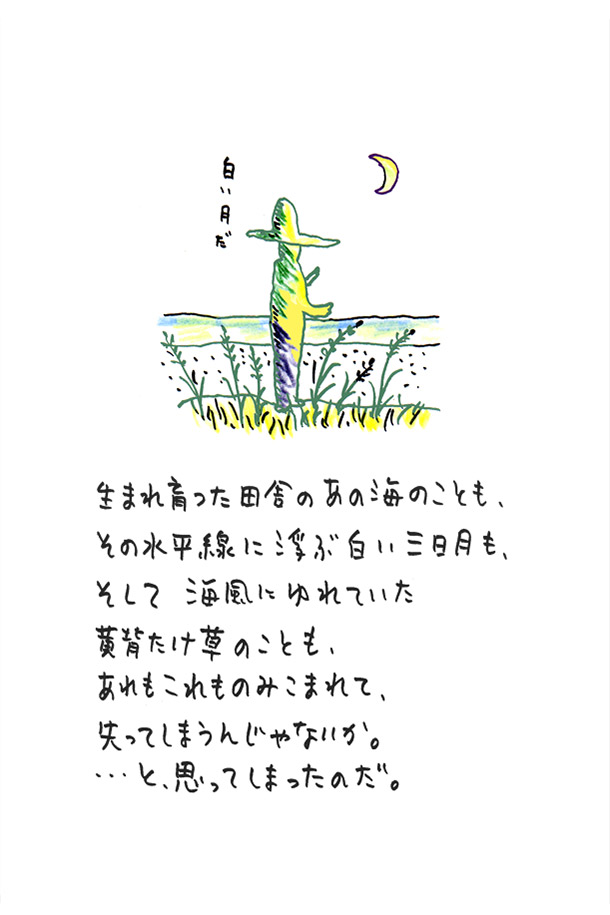 白い月だ
生まれ育った田舎のあの海のことも、
その水平線に浮ぶ白い三日月も、
そして 海風にゆれていた
黄背たけ草のことも、
あれもこれものみこまれて、
失ってしまうんじゃないか。
…と、思ってしまったのだ。